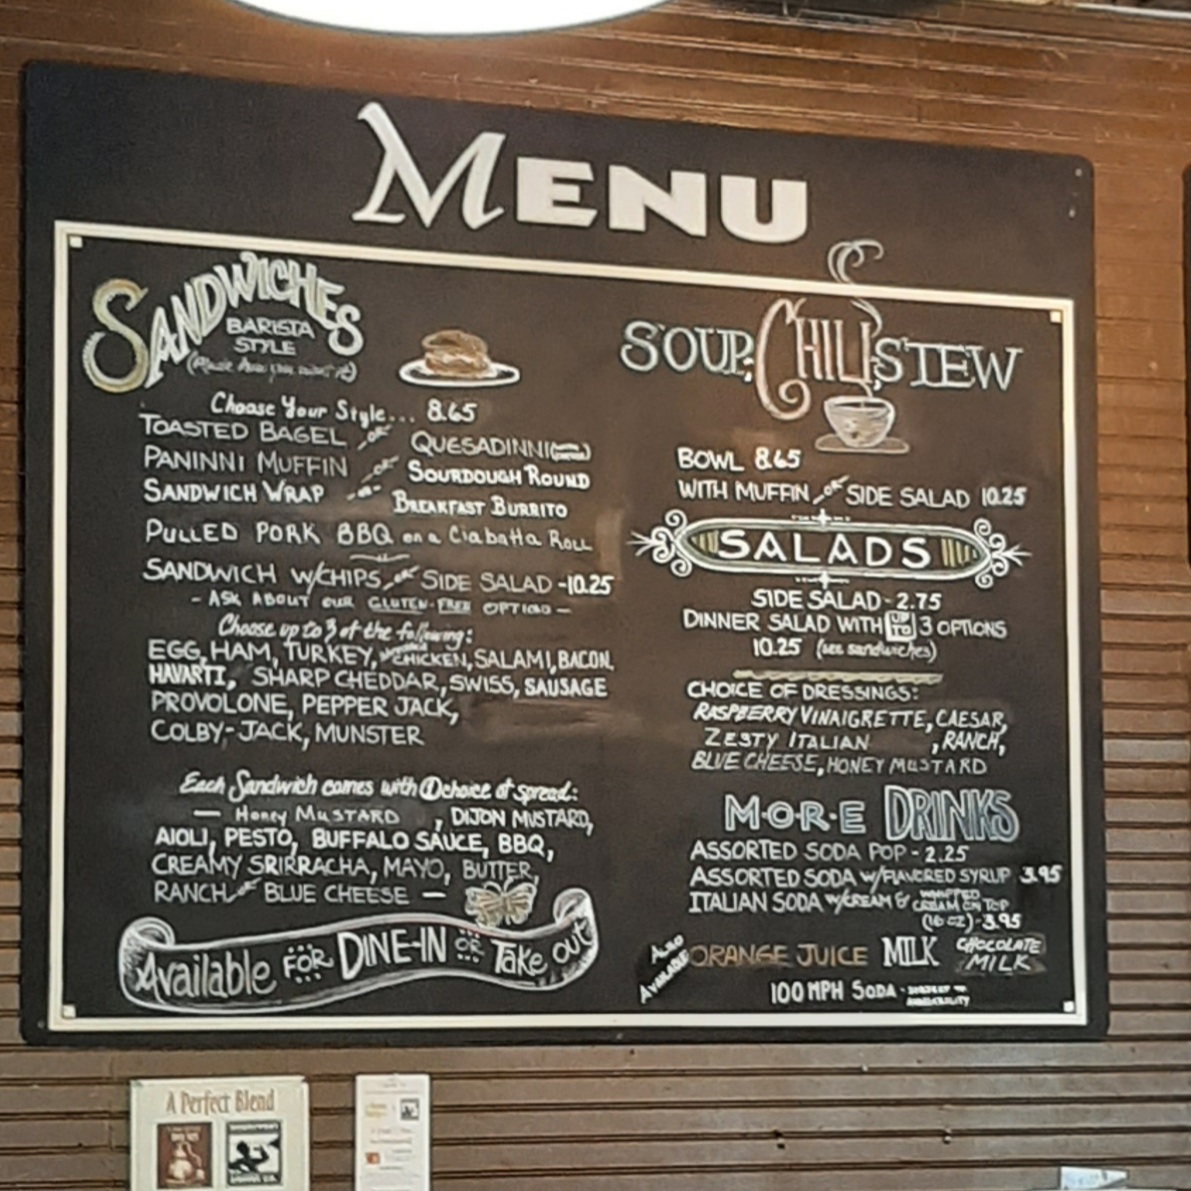 MENU
SANDWICHES
BARISTA
STYLE
Choose Your Style... 8.65
TOASTED BAGEL or QUESADINNI
PANINNI MUFFIN or SOURDOUGH ROUND
SANDWICH WRAP or BREAKFAST BURRITO
PULLED PORK BBQ on a Ciabatta ROLL
SANDWICH W/CHIPS or SIDE SALAD -10.25
- ASK ABOUT our GLUTEN-FREE OPTION -
Choose up to 3 of the following:
EGG, HAM, TURKEY, CHICKEN, SALAMI, BACON,
HAVARTI, SHARP CHEDDAR, SWISS, SAUSAGE
PROVOLONE, PEPPER JACK,
COLBY-JACK, MUNSTER
Each Sandwich comes with 1 choice of spread:
— Honey MUSTARD , DIJON MUSTARD,
AIOLI, PESTO, BUFFALO SAUCE, BBQ,
CREAMY SRIRRACHA, MAYO, BUTTER,
RANCH or BLUE CHEESE —
Available FOR DINE-IN OR Take out
SOUP, CHILI, STEW
BOWL 8.65
WITH MUFFIN or SIDE SALAD 10.25
SALADS
SIDE SALAD - 2.75
DINNER SALAD WITH UP TO 3 OPTIONS
10.25 (see sandwiches)
CHOICE OF DRESSINGS:
RASPBERRY VINAIGRETTE, CAESAR,
ZESTY ITALIAN , RANCH,
BLUE CHEESE, HONEY MUSTARD
M·O·R·E DRINKS
ASSORTED SODA POP - 2.25
ASSORTED SODA W/FLAVORED SYRUP 3.95
ITALIAN SODA W/CREAM & WHIPPED CREAM ON TOP
(16 OZ) - 3.95
ALSO AVAILABLE ORANGE JUICE MILK CHOCOLATE MILK
100 MPH SODA - SUBJECT TO AVAILABILITY
A Perfect Blend